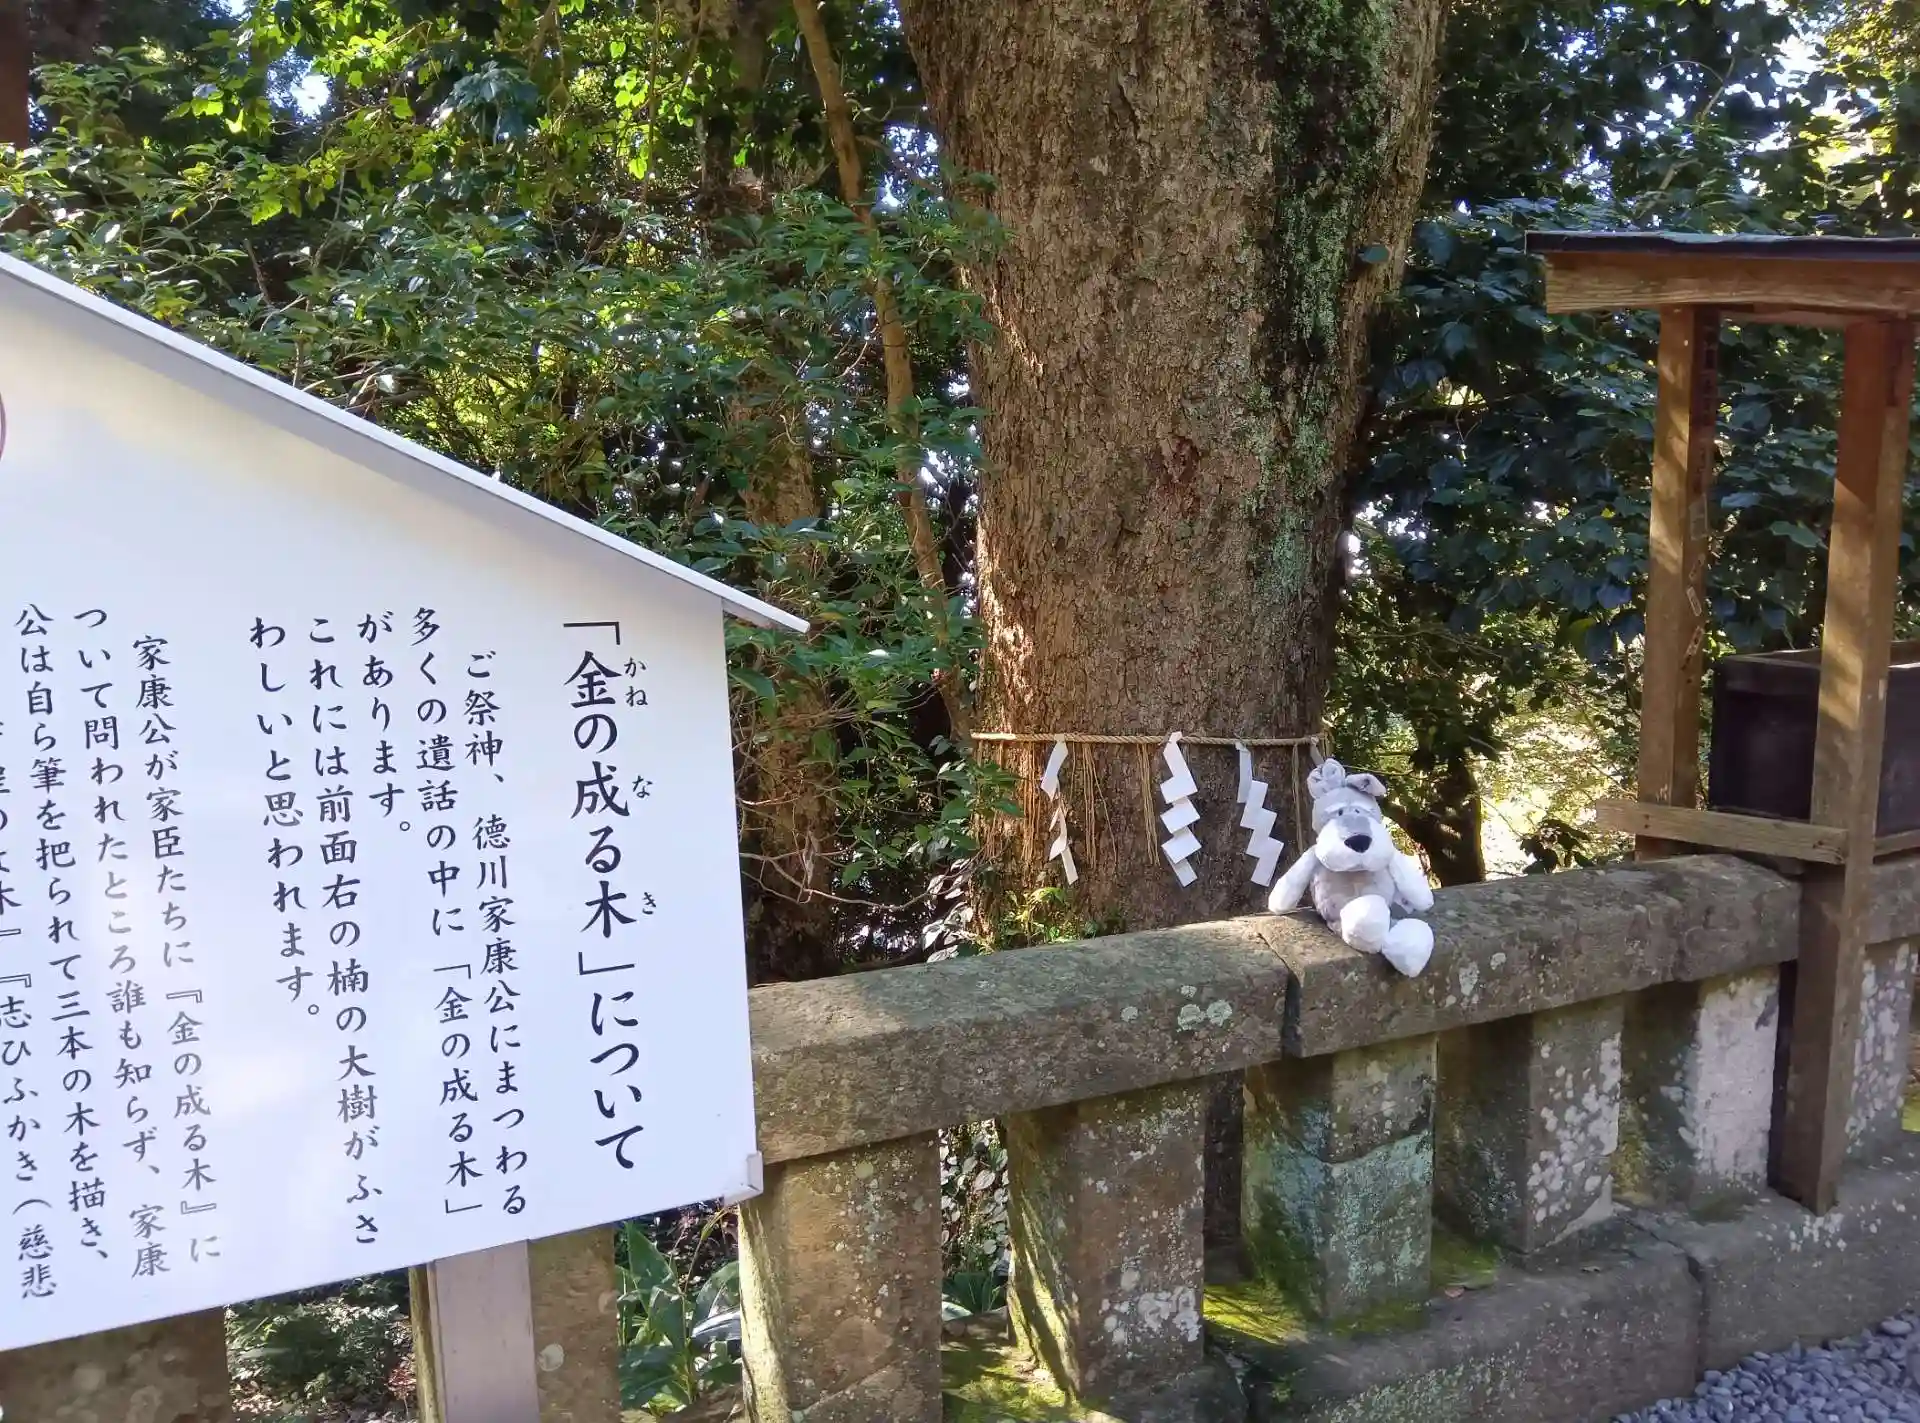 「金の成る木」について
かね
な
き
ご祭神、徳川家康公にまつわる
多くの遺話の中に「金の成る木」
があります。
これには前面右の楠の大樹がふさ
わしいと思われます。
家康公が家臣たちに『金の成る木』に
ついて問われたところ誰も知らず、家康
公は自ら筆を把られて三本の木を描き、
木』『志ひふかき(慈悲